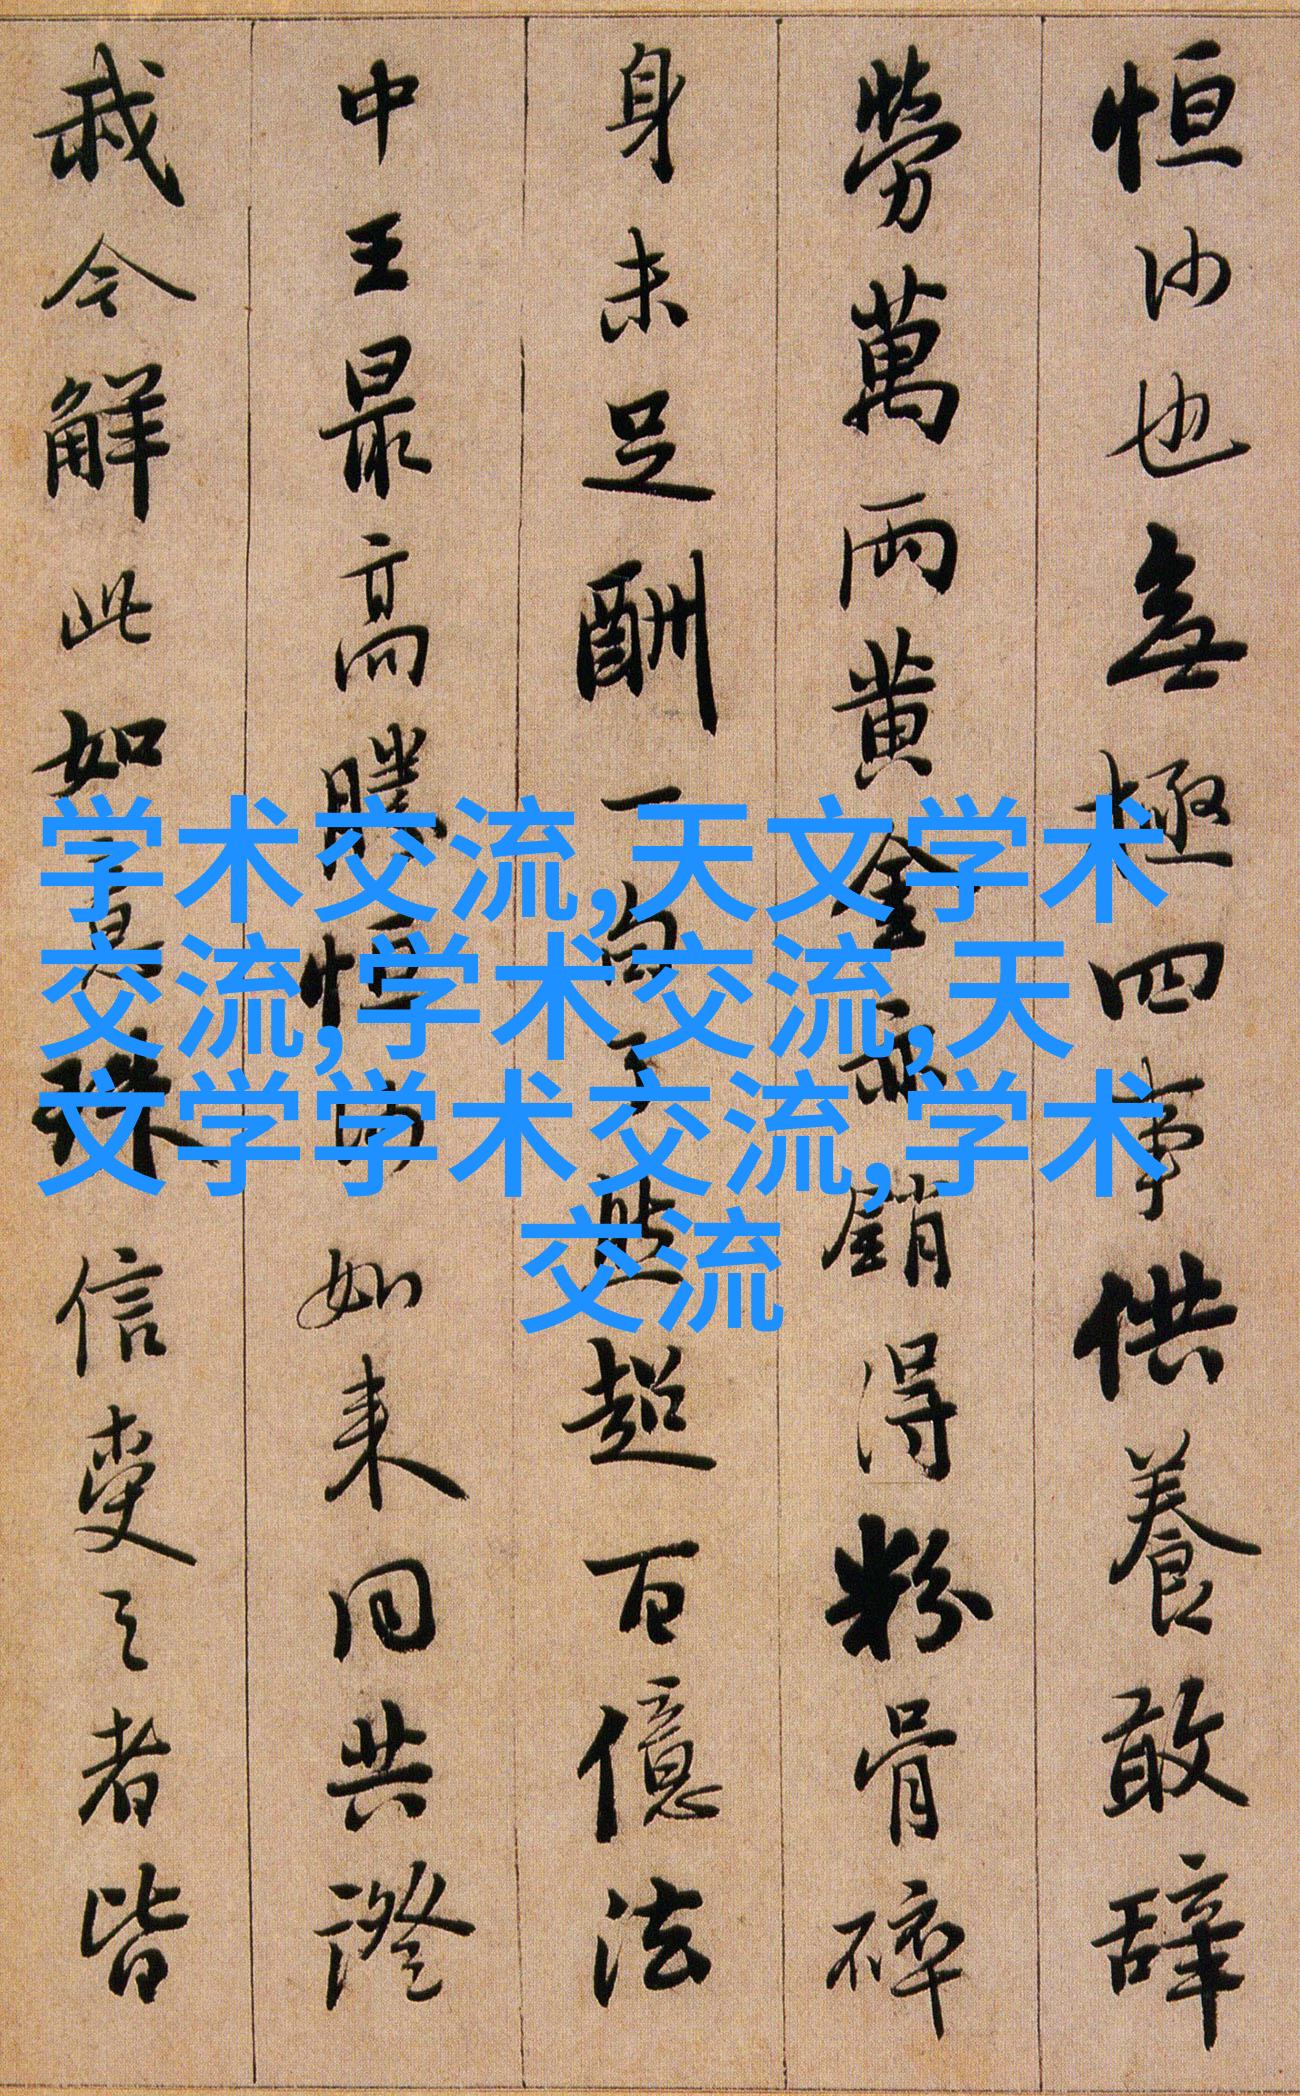 恒沙也無極四事供養敢辭
勞萬兩黃金亦銷得粉骨碎
身未足酬一句了然超百億法
中王最高勝恒沙如来同共證
我今解此如意珠信受之者皆
学术交流,天文学术
交流,学术交流,天
文学学术交流,学术
交流